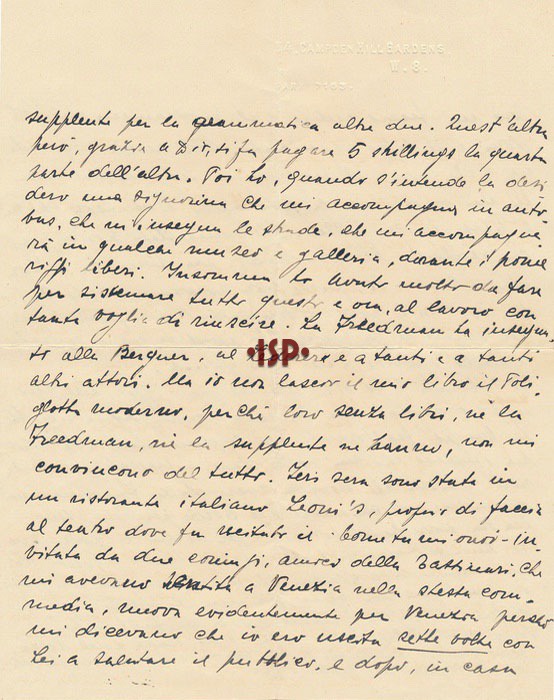 CAMPDEN HILL GARDENS
W. 8.
supplente per la grammatica altre due. Quest'altra
però, grazie a Dio, si fa pagare 5 skillings la quarta
parte dell'altra. Poi ho, quando s'intende la desi
dero una signorina che mi accompagna in auto
bus, che mi insegna le strade, che mi accompagne
rà in qualche museo e galleria, durante i pome
riggi liberi. Insomma ho avuto molto da fare
per sistemare tutto questo e ora, al lavoro con
tanta voglia di riuscire. La Freedman ha insegna
to alla Bergner, al e a tanti e a tanti
altri attori. Ma io non lascio il mio libro il Poli
glotta moderno, perchè loro senza libri, nè la
Freedman, nè la supplente ne hanno, non mi
convincono del tutto. Ieri sera sono stata in
un ristorante italiano Leoni's, proprio di faccia
al teatro dove fu recitato il Come tu mi vuoi - in-
vitata da due coniugi, amici della che
mi avevano sentita a Venezia nella stessa com-
media, nuova evidentemente per Venezia perchè
mi dicevano che io ero uscita sette volte con
Lei a salutare il pubblico, e dopo, in casa
ISP